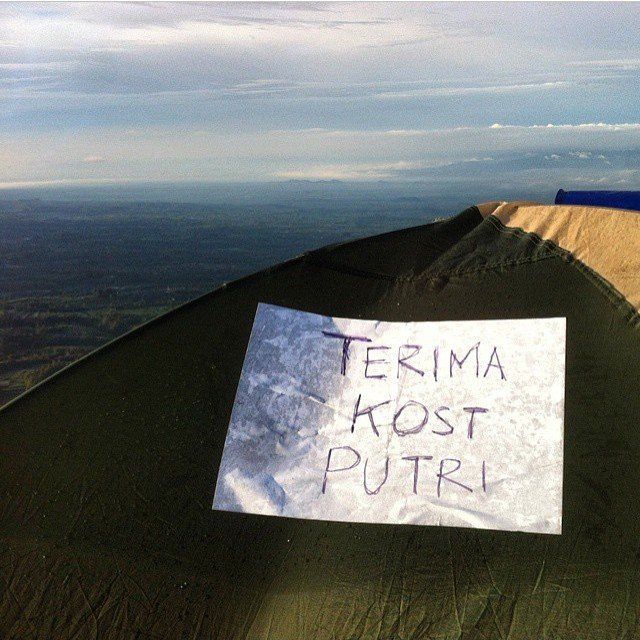 TERIMA
KOST
PUTRI